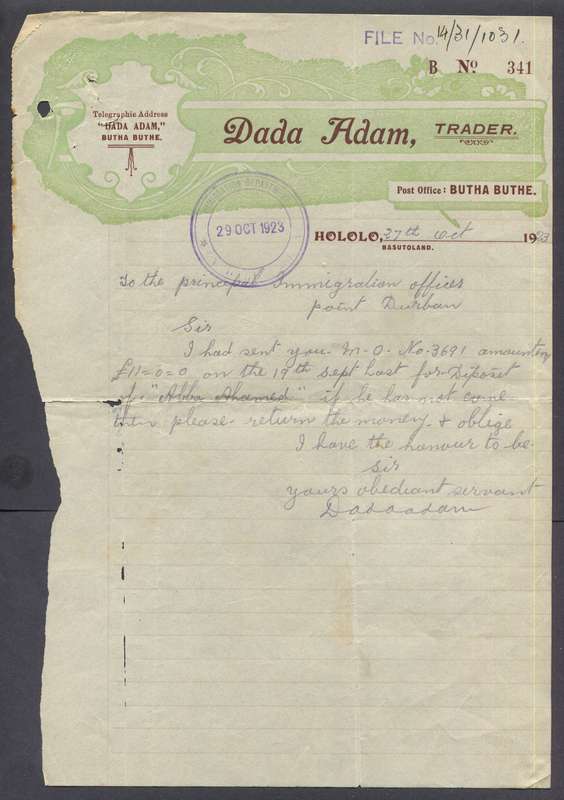 FILE No. 14/31/1031.
B No 341
Telegraphic Address
"DADA ADAM,"
BUTHA BUTHE.
Dada Adam, TRADER.
Post Office: BUTHA BUTHE.
29 OCT 1923
HOLOLO, 27th Oct 1923
BASUTOLAND.
To the principal Immigration officer
point Durban
Sir
I had sent you M-O- No-3691 amounting
£11=0=0 on the 19th Sept last for Diposet
of "Abba Ahamed" if he has not come
then please return the money & oblige
I have the honour to be
Sir
yours obediant servant
Dadaadam